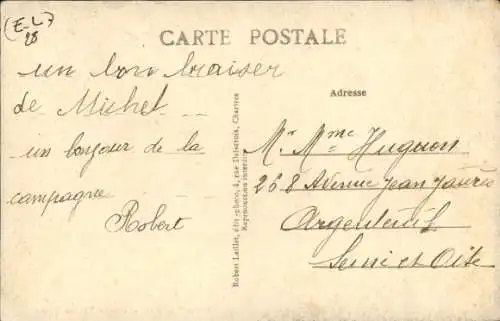 (E-L)
28
CARTE POSTALE
un bon braiser
de Michel
un bonjour de la
campagne
Robert
Robert Laillet, édit.-photo, 4, rue Delacroix, Chartres
Reproduction interdite
Adresse
Mr Mme Huguon
268 Avenue Jean Jaurès
Argenteuil
Seine et Oise